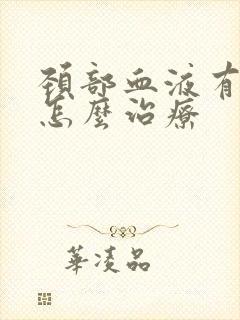 頚部血液有
怎麼治療
華凌品